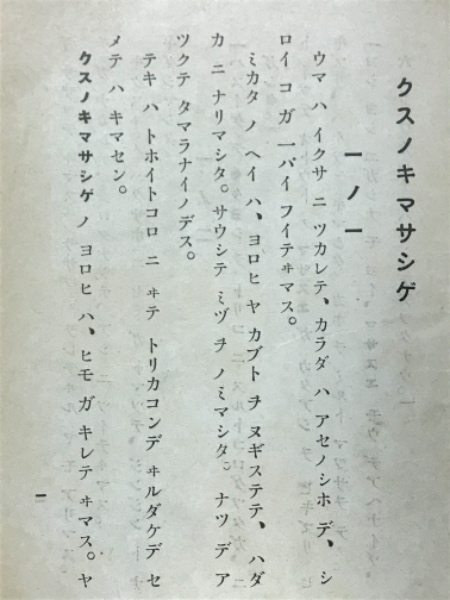 クスノキマサシゲ
一ノ一
ウマ ハ イクサ ニ ツカレテ、カラダ ハ アセノシホ デ、シ
ロイ コガ 一パイ フイテヰマス。
ミカタ ノ ヘイ ハ、ヨロヒ ヤ カブト ヲ ヌギステテ、ハダ
カ ニ ナリマシタ。サウシテ ミヅ ヲ ノミマシタ。ナツ デ ア
ツクテ タマラナイノデス。
テキ ハ トホイトコロ ニ ヰテ トリカコンデ ヰルダケデ セ
メテ ハ キマセン。
クスノキマサシゲ ノ ヨロヒ ハ、ヒモ ガ キレテ ヰマス。ヤ
一